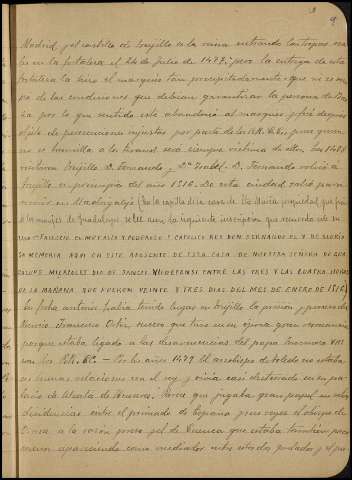 9
Madrid, y el castillo de Trujillo se la reina entrando las tropas rea-
les en la fortaleza el 24 de Julio de 1477; pero la entrega de esta
fortaleza la hizo el marqués tan precipitadamente que no se
de las condiciones que debian garantizar la persona de
za por lo que sentido este abandonó al marques y fué despues
objeto de persecuciones injustas por parte de los RR. CC. pues quien
no se humilla a los tiranos será siempre victima de ellos. En 1478
visitaron Trujillo D. Fernando y Dª Isabel. D. Fernando volvió a
Trujillo en principio del año 1516. De esta ciudad salió para
morir en Madrigalejo
a los monjes de Guadalupe se lee aun la siguiente inscripcion que recuerda este su-
FALLECIO EL MUY ALTO Y PODEROSO Y CATOLICO REY DON FERNANDO EL V DE GLORIO
SA MEMORIA AQUI EN ESTE APOSENTO DE ESTA CASA DE NUESTRA SEÑORA DE GUA
DALUPE MIERCOLES DIA DE SANCTI ENTRE LAS TRES Y LAS CUATRO HORAS
DE LA MAÑANA QUE FUERON VEINTE Y TRES DIAS DEL MES DE ENERO DE 1516
En fecha anterior habia tenido lugar en Trujillo la prision y proceso del
Nuncio Francisco Ortiz, suceso que hizo en su época gran
porque estaba ligado a las desavenencias del papa Inocencio VIII
con los RR. CC. — Por los años 1479 El arzobispo de Toledo no estaba
en buenas relaciones con el rey y vivia casi desterrado en su pa-
lacio de Alcala de Henares. Parece que jugaba gran papel en estas
disidencias entre el primado de España y sus reyes el obispo de
a la sazon preso y el de Cuenca que estaba tambien
apareciendo como mediador entre estos dos prelados y el